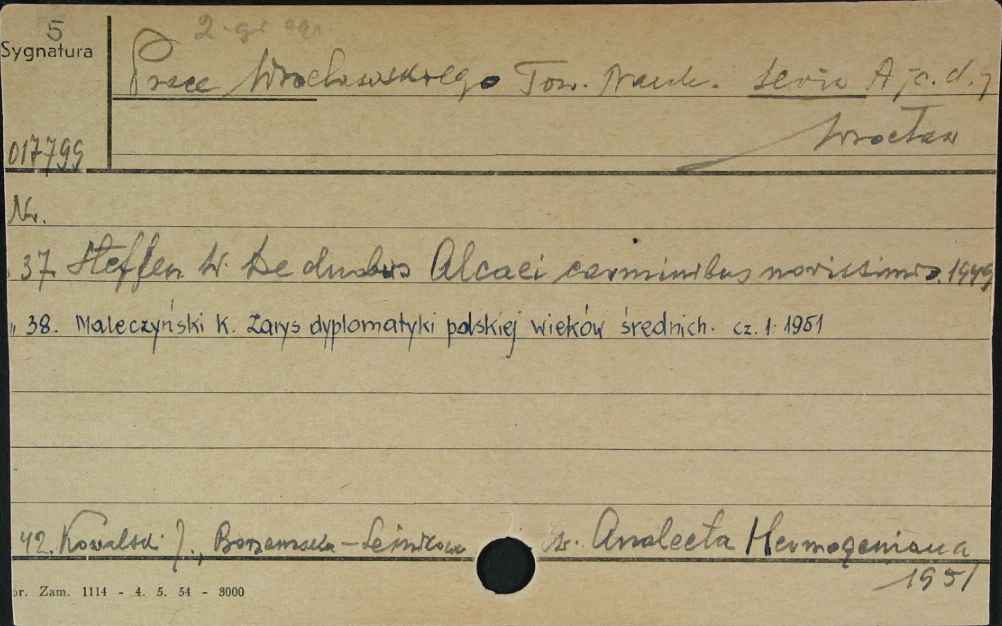 5
Sygnatura
Prace Wrocławskiego Tow. Nauk. Seria A c. d. 7
Wrocław
017799
Nr.
37. Steffen W. De duobus Alcaei carminibus novissimis. 1949
" 38. Maleczyński K. Zarys dyplomatyki polskiej wieków średnich. cz. 1. 1951
42. Kowalski J., Leśnikowa Analecta Hermogeniana
1951
or. Zam. 1114 - 4. 5. 54 - 3000